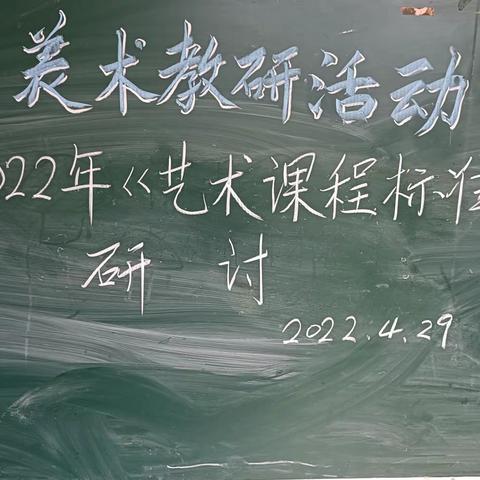 美术教研活动
022年《艺术课程标准
研讨
2022.4.29